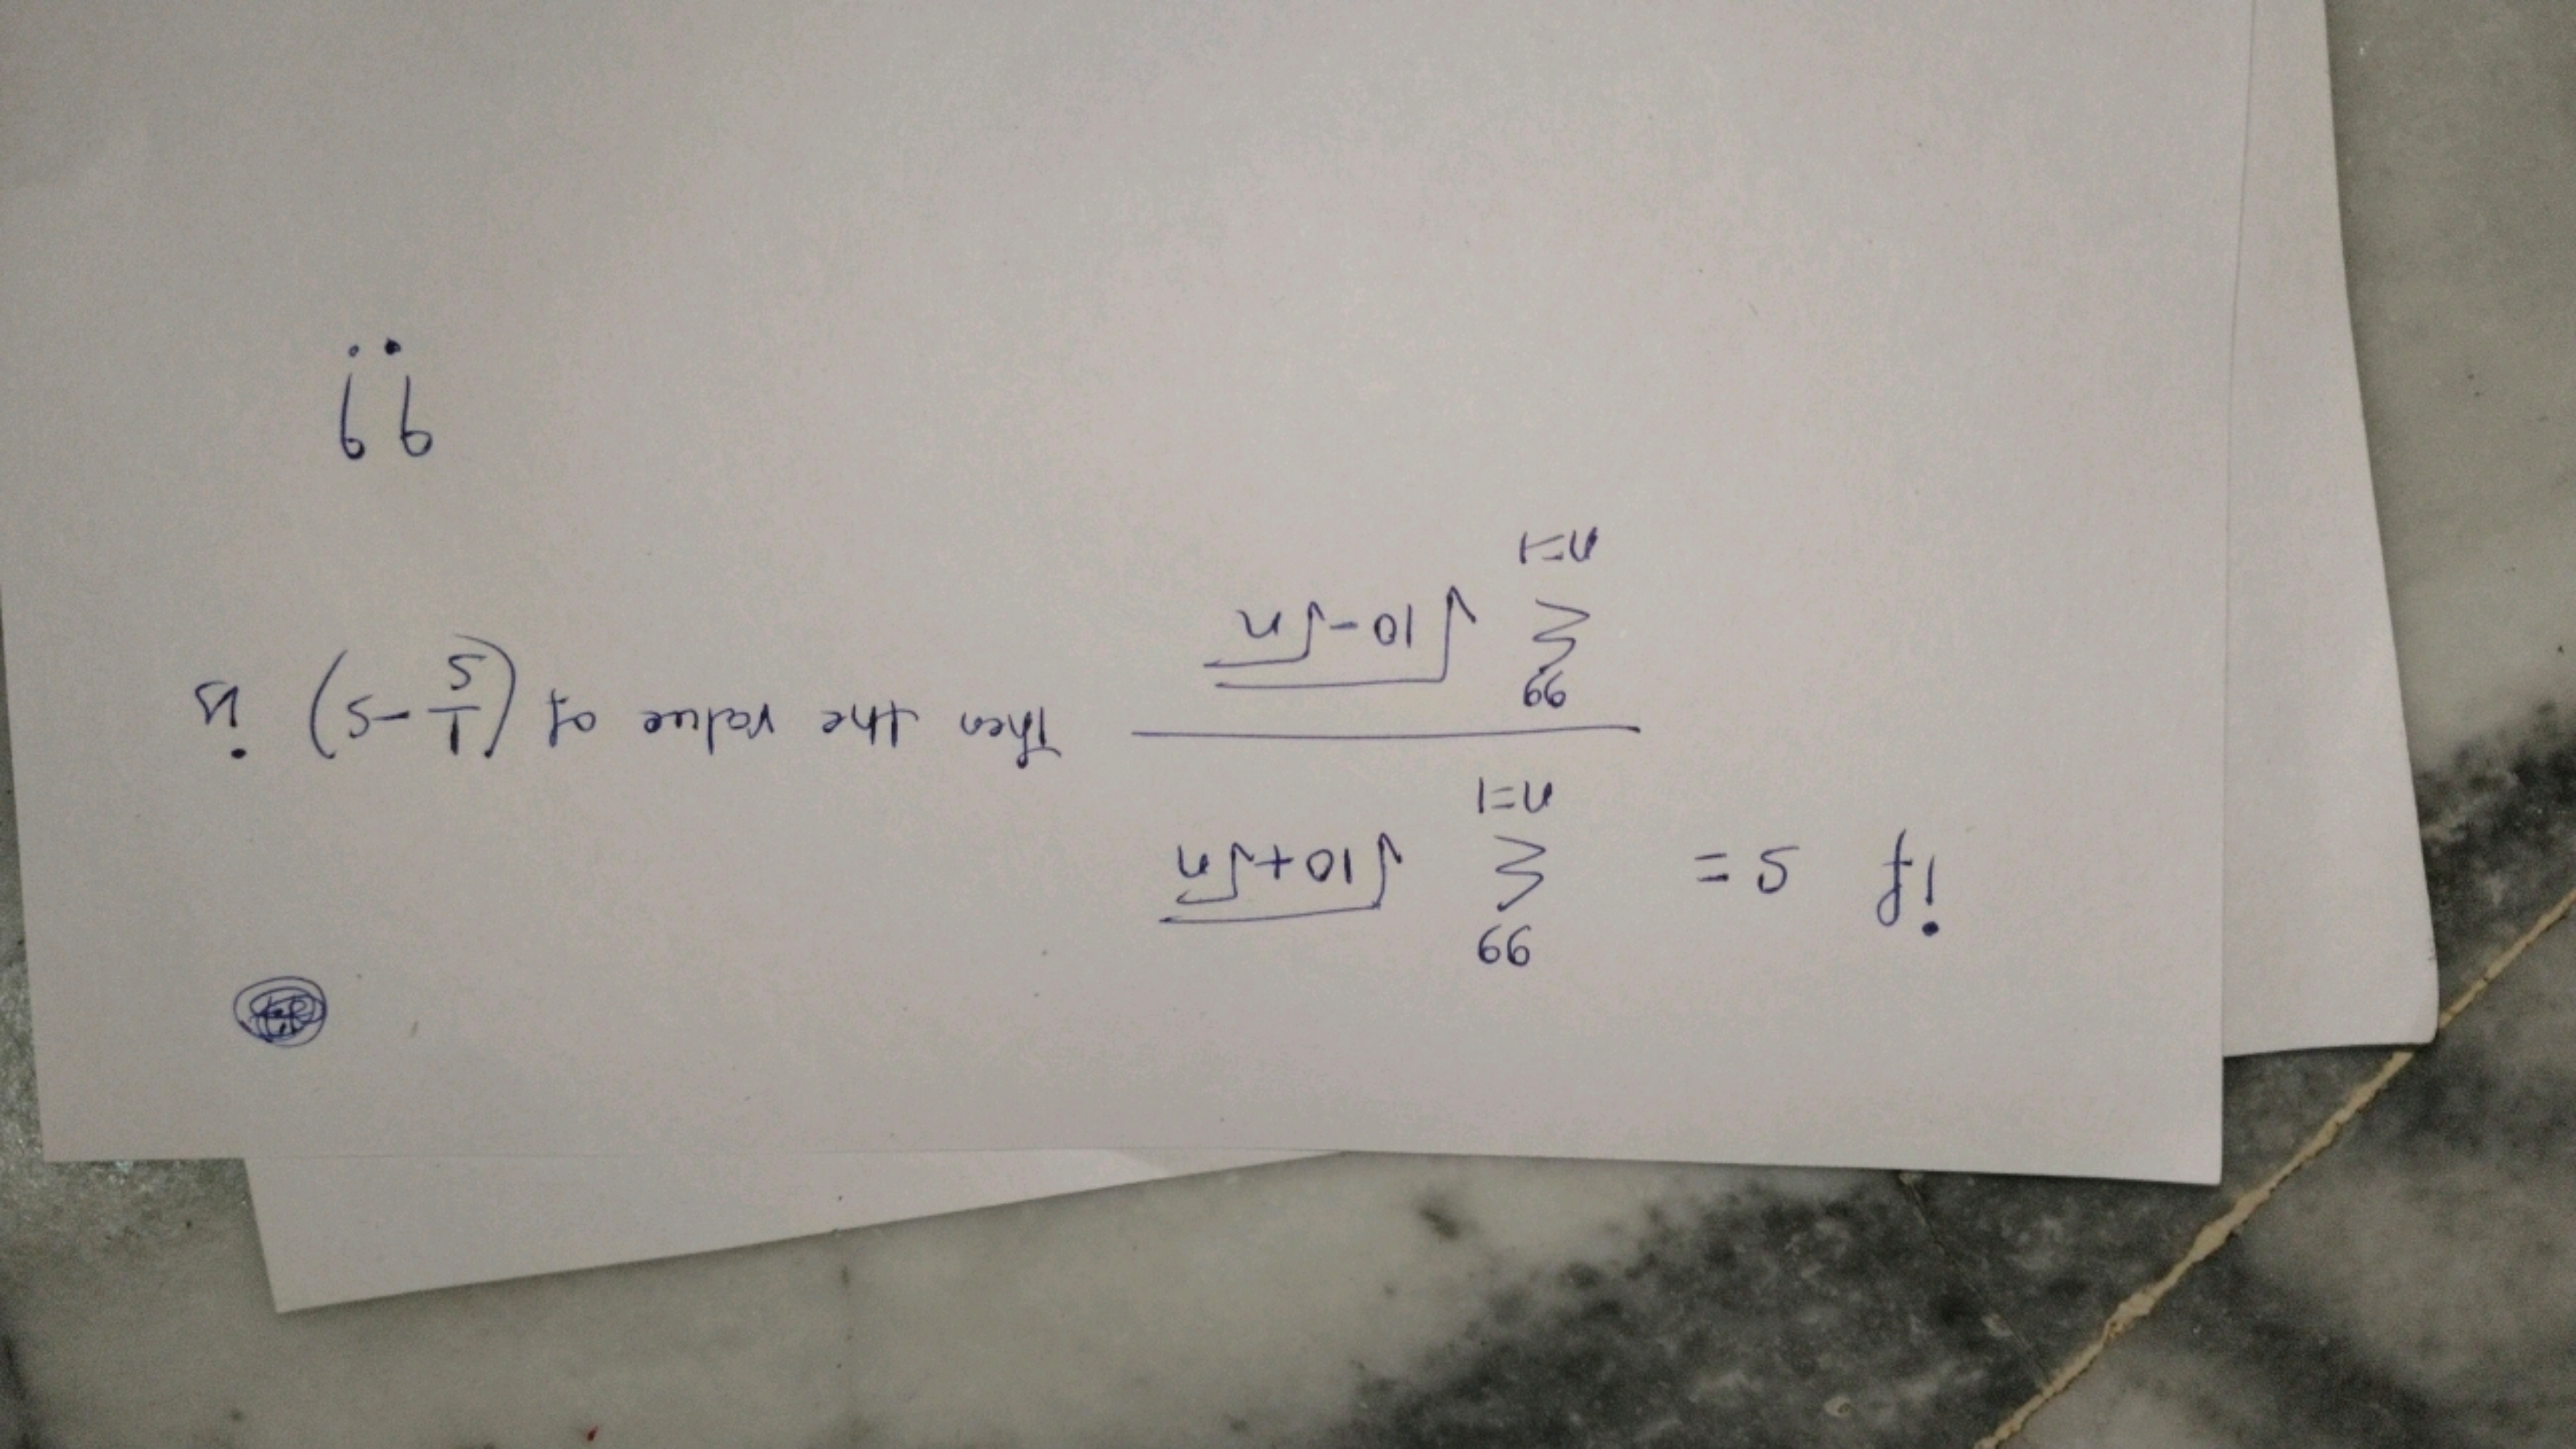 if S = \frac{\sum_{n=1}^{99} \sqrt{10+\sqrt{n}}}{\sum_{n=1}^{99} \sqrt{10-\sqrt{n}}} Then the value of (\frac{1}{S} - S) is
??